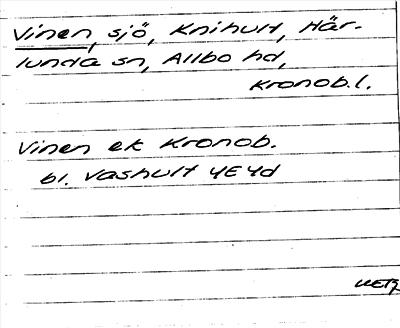 Vinen, sjö, Knihult, Här-
lunda sn, Allbo hd,
Kronob.l.
Vinen ek Kronob.
bl. Vashult 4E4d